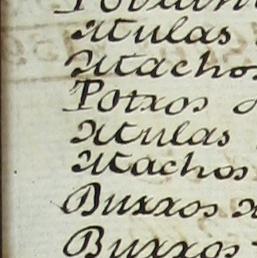 Mulas
Machos
Potros
Mulas
Machos
Burros
Burros